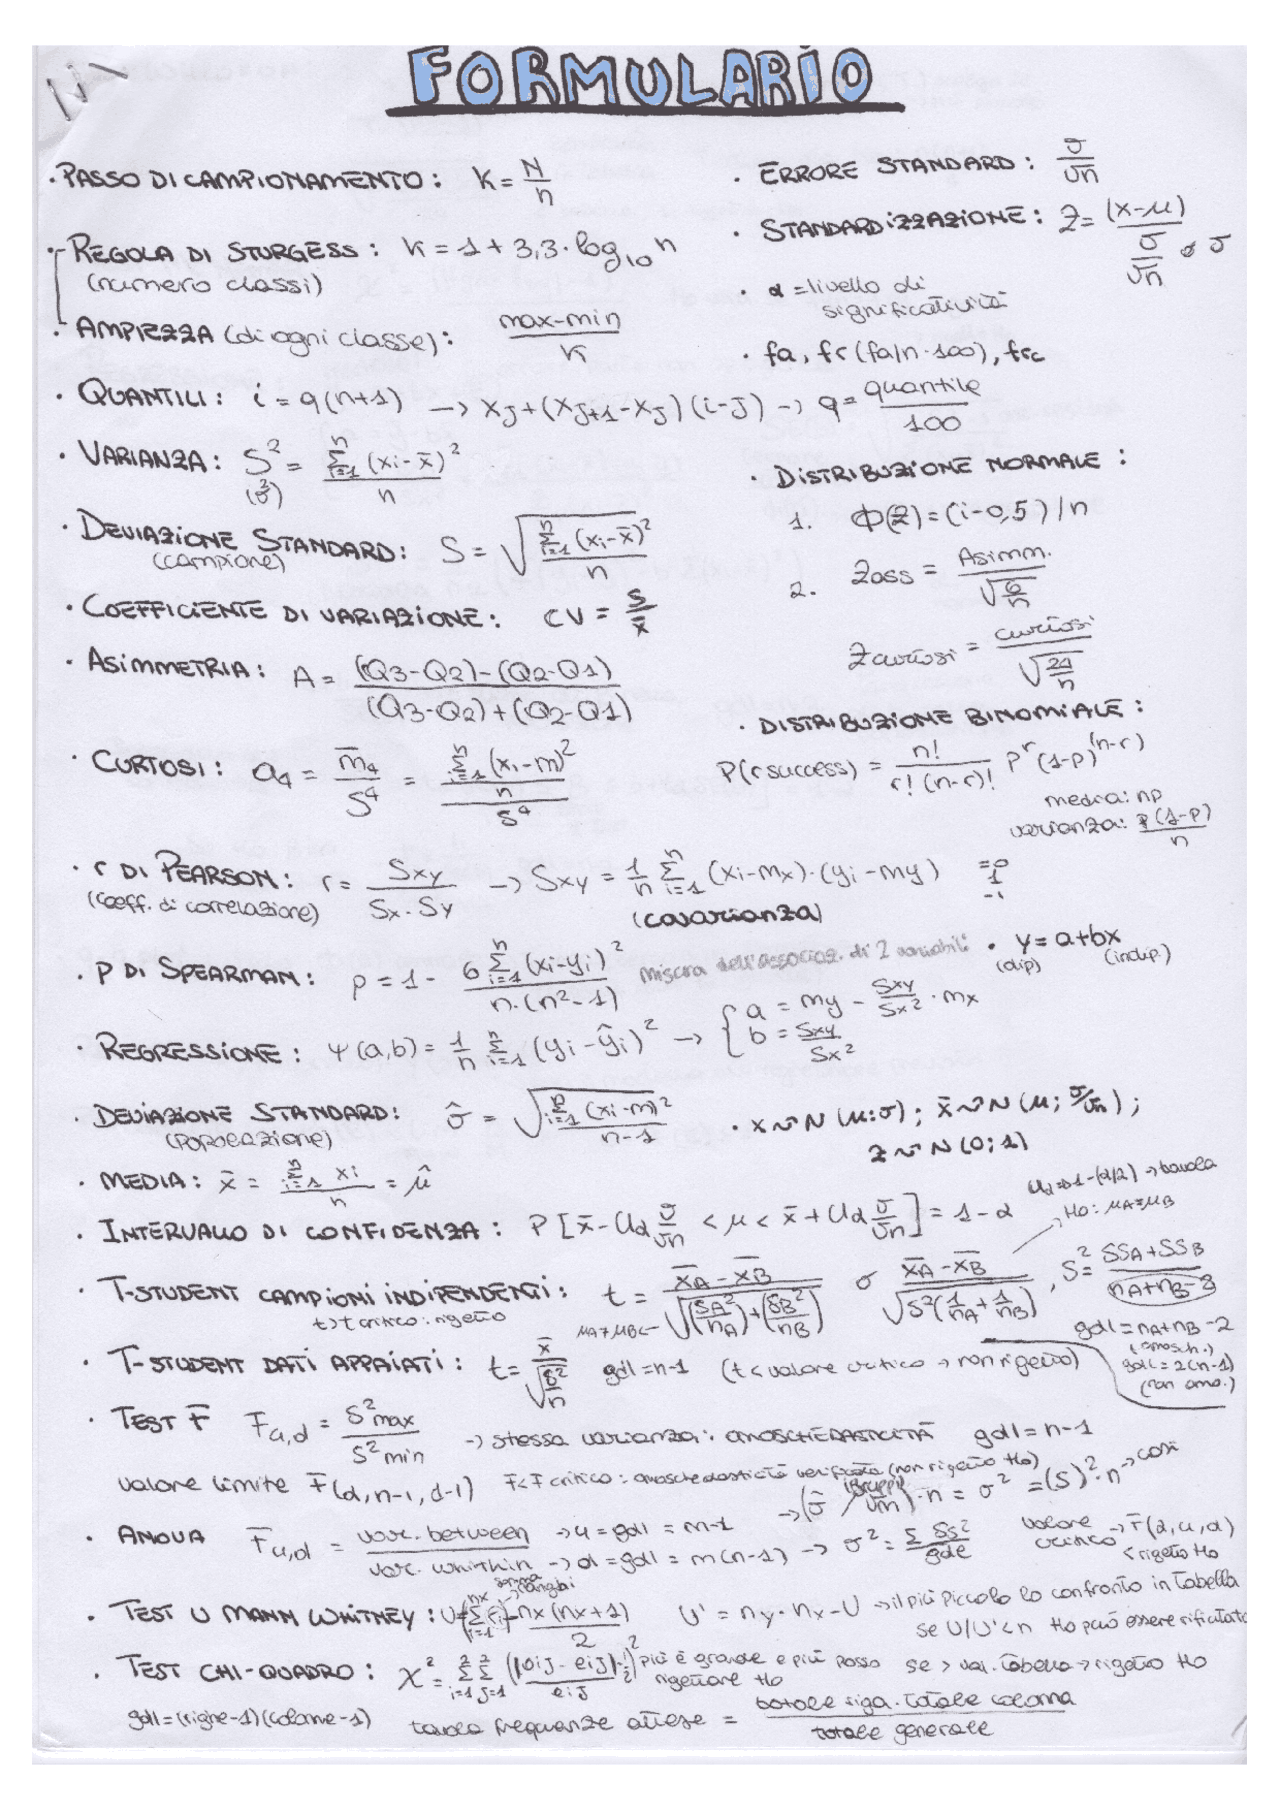 FORMULARIO
· PASSO DI CAMPIONAMENTO: K = N/n
· ERRORE STANDARD: σ/√n
· STANDARDIZZAZIONE: Z = (x-μ) / (σ/√n) o σ
· REGOLA DI STURGESS: K = 1 + 3,3 · log₁₀ n
(numero classi)
· α = livello di significatività
· AMPIEZZA (di ogni classe): max-min / K
· fa, fr (fa/n · 100), frc
· QUANTILI: i = q(n+1) → xj + (xj+1 - xj)(i-j) → q = quantile/100
· VARIANZA: S² = Σⁿi=1 (xi - x̄)² / n
(σ²)
· DISTRIBUZIONE NORMALE:
1. Φ(z) = (i-0,5)/n
· DEVIAZIONE STANDARD: S = √(Σⁿi=1 (xi - x̄)² / n)
(campione)
2. Zass = Asimm. / √(6/n)
· COEFFICIENTE DI VARIAZIONE: CV = S/x̄
Zcurtosi = curtosi / √(24/n)
· ASIMMETRIA: A = (Q3-Q2)-(Q2-Q1) / (Q3-Q2)+(Q2-Q1)
· DISTRIBUZIONE BINOMIALE:
P(r success) = n! / r!(n-r)! p^r (1-p)^(n-r)
media: np
varianza: p(1-p)/n
· CURTOSI: a4 = m̄4/S⁴ = (Σⁿi=1 (xi-m)² / n) / S⁴
· r DI PEARSON: r = Sxy / Sx·Sy → Sxy = 1/n Σⁿi=1 (xi-mx)·(yi-my) =0 1 -1
(coeff. di correlazione) (covarianza)
· ρ DI SPEARMAN: ρ = 1 - 6 Σⁿi=1 (xi-yi)² / n·(n²-1) misura dell'associaz. di 2 variabili
· y = a+bx
(dip) (indip.)
· REGRESSIONE: Ψ(a,b) = 1/n Σⁿi=1 (yi-ŷi)² → { a = my - Sxy/Sx² · mx
b = Sxy/Sx²
· DEVIAZIONE STANDARD: σ̂ = √(Σⁿi=1 (xi-m)² / n-1)
(POPOLAZIONE)
· x ~ N(μ;σ); x̄ ~ N(μ; σ/√n);
z ~ N(0;1)
· MEDIA: x̄ = Σⁿi=1 xi / n = μ̂
Uα ⇒ 1-(α/2) → tavola
· INTERVALLO DI CONFIDENZA: P[x̄ - Uα σ/√n < μ < x̄ + Uα σ/√n] = 1-α
H0: μA=μB
· T-STUDENT CAMPIONI INDIPENDENTI: t = x̄A - x̄B / √((SA²/nA)+(SB²/nB)) o x̄A - x̄B / √(S²(1/nA + 1/nB)), S² = SSA+SSB / nA+nB-2
t>t critico: rigetto μA≠μB←
gdl = nA+nB-2
(omosch.)
gdl = 2(n-1)
(non omo.)
· T-STUDENT DATI APPAIATI: t = x̄ / √(S²/n) gdl = n-1 (t < valore critico → non rigetto)
· TEST F Fu,d = S²max / S²min → stessa varianza: OMOSCHEDASTICITÀ gdl = n-1
valore limite F(α,n-1,d-1) F<F critico: omoschedasticità verificata (non rigetto H0)
→ (σ̂/√m)·n = σ² = (S)²·n → così
(gruppi)
· ANOVA Fu,d = var. between / var. whithin → u = gdl = m-1
→ d = gdl = m(n-1) → σ² = Σ SS²/gdl valore critico → F(α,u,d)
< rigetto H0
· TEST U MANN WHITNEY: U = (Σnx i=1 ri) - nx(nx+1)/2 U' = ny·nx-U → il più piccolo lo confronto in tabella
somma ranghi
se U/U'<n H0 può essere rifiutata
· TEST CHI-QUADRO: χ² = Σ²i=1 Σ²j=1 (|oij - eij| - 1/2)² / eij più è grande e più posso rigettare H0 se > val. tabella → rigetto H0
gdl = (righe-1)(colonne-1) tavola frequenze attese = totale riga · totale colonna / totale generale